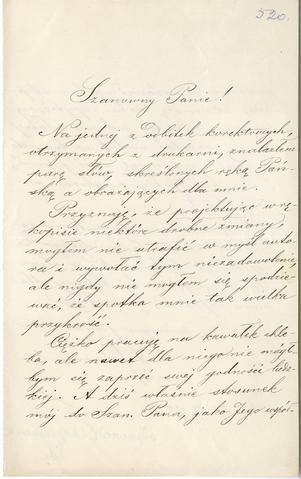 520.
Szanowny Panie!
Na jednéj z odbitek korektowych,
otrzymanych z drukarni, znalazłem
parę słów, skreślonych ręką Pań-
ską a obrażających dla mnie.
Przyznaję, że projektując w rę-
kopisie niektóre drobne zmiany,
mogłem nie utrafić w myśl auto-
ra i wywołać tym niezadowolenie,
ale nigdy nie mogłem się spodzie-
wać, że spotka mnie tak wielka
przykrość.
Ciężko pracuję na kawałek chle-
ba, ale nawet dla niego nie mógł-
bym się zaprzeć swej godności ludz-
kiéj. A dziś właśnie stosunek
mój do Szan. Pana, jako Jego współ-